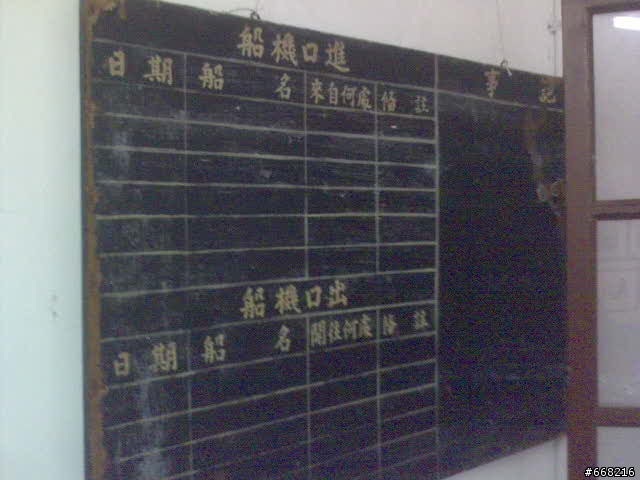 進口機船
記事
日期 船名 來自何處 俻註
出口機船
日期 船名 開往何處 俻註
#668216